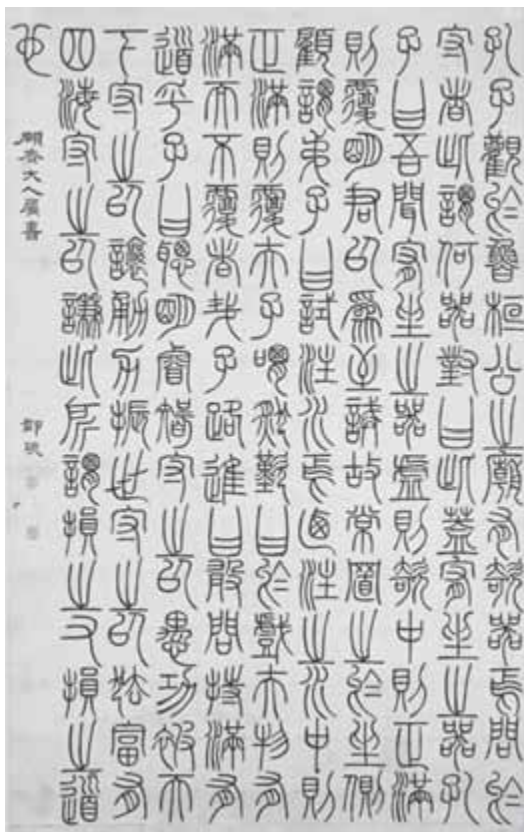 孔子觀於魯桓公之廟有欹器焉問於
守者此謂何器對曰此蓋宥坐之器孔
子曰吾聞宥坐之器虛則欹中則正滿
則覆明君以為至誡故常置之於坐側
顧謂弟子曰試注水焉迺注之水中則
正滿則覆夫子喟然歎曰於戲夫物有
滿而不覆者哉子路進曰敢問持滿有
道乎子曰聰明睿智守之以愚功被天
下守之以讓勇力振世守之以怯富有
四海守之以謙此所謂損之又損之道
也
大人屬書
鄧琰